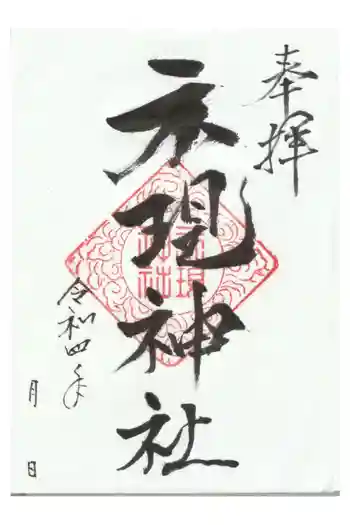 奉拝
示現神社
令和四年
月 日